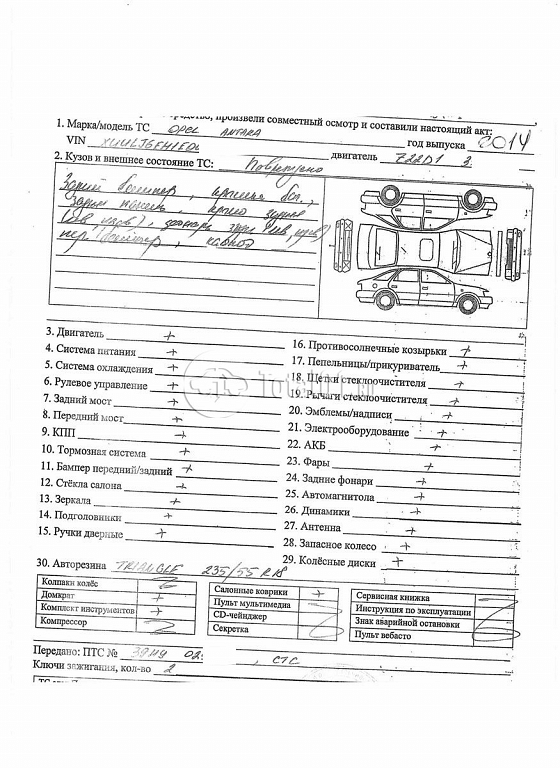 средство, произвели совместный осмотр и составили настоящий акт:
1. Марка/модель ТС OPEL ANTARA
VIN год выпуска 2014
двигатель Z22D1
2. Кузов и внешнее состояние ТС: Повреждено
Задний бампер, крышка баг.,
задняя панель, крыло заднее
пер. бампер, капот
3. Двигатель +
4. Система питания +
5. Система охлаждения +
6. Рулевое управление +
7. Задний мост +
8. Передний мост +
9. КПП +
10. Тормозная система +
11. Бампер передний/задний +
12. Стёкла салона +
13. Зеркала +
14. Подголовники +
15. Ручки дверные +
16. Противосолнечные козырьки +
17. Пепельницы/прикуриватель +
18. Щетки стеклоочистителя +
19. Рычаги стеклоочистителя +
20. Эмблемы/надписи +
21. Электрооборудование +
22. АКБ +
23. Фары +
24. Задние фонари +
25. Автомагнитола +
26. Динамики +
27. Антенна +
28. Запасное колесо +
29. Колёсные диски +
30. Авторезина TRIANGLE 235/55 R18
Колпаки колёс
Домкрат +
Комплект инструментов +
Компрессор
Салонные коврики +
Пульт мультимедиа
CD-чейнджер
Секретка
Сервисная книжка
Инструкция по эксплуатации
Знак аварийной остановки
Пульт вебасто
Передано: ПТС № 39НУ 02: , СТС
Ключи зажигания, кол-во 2